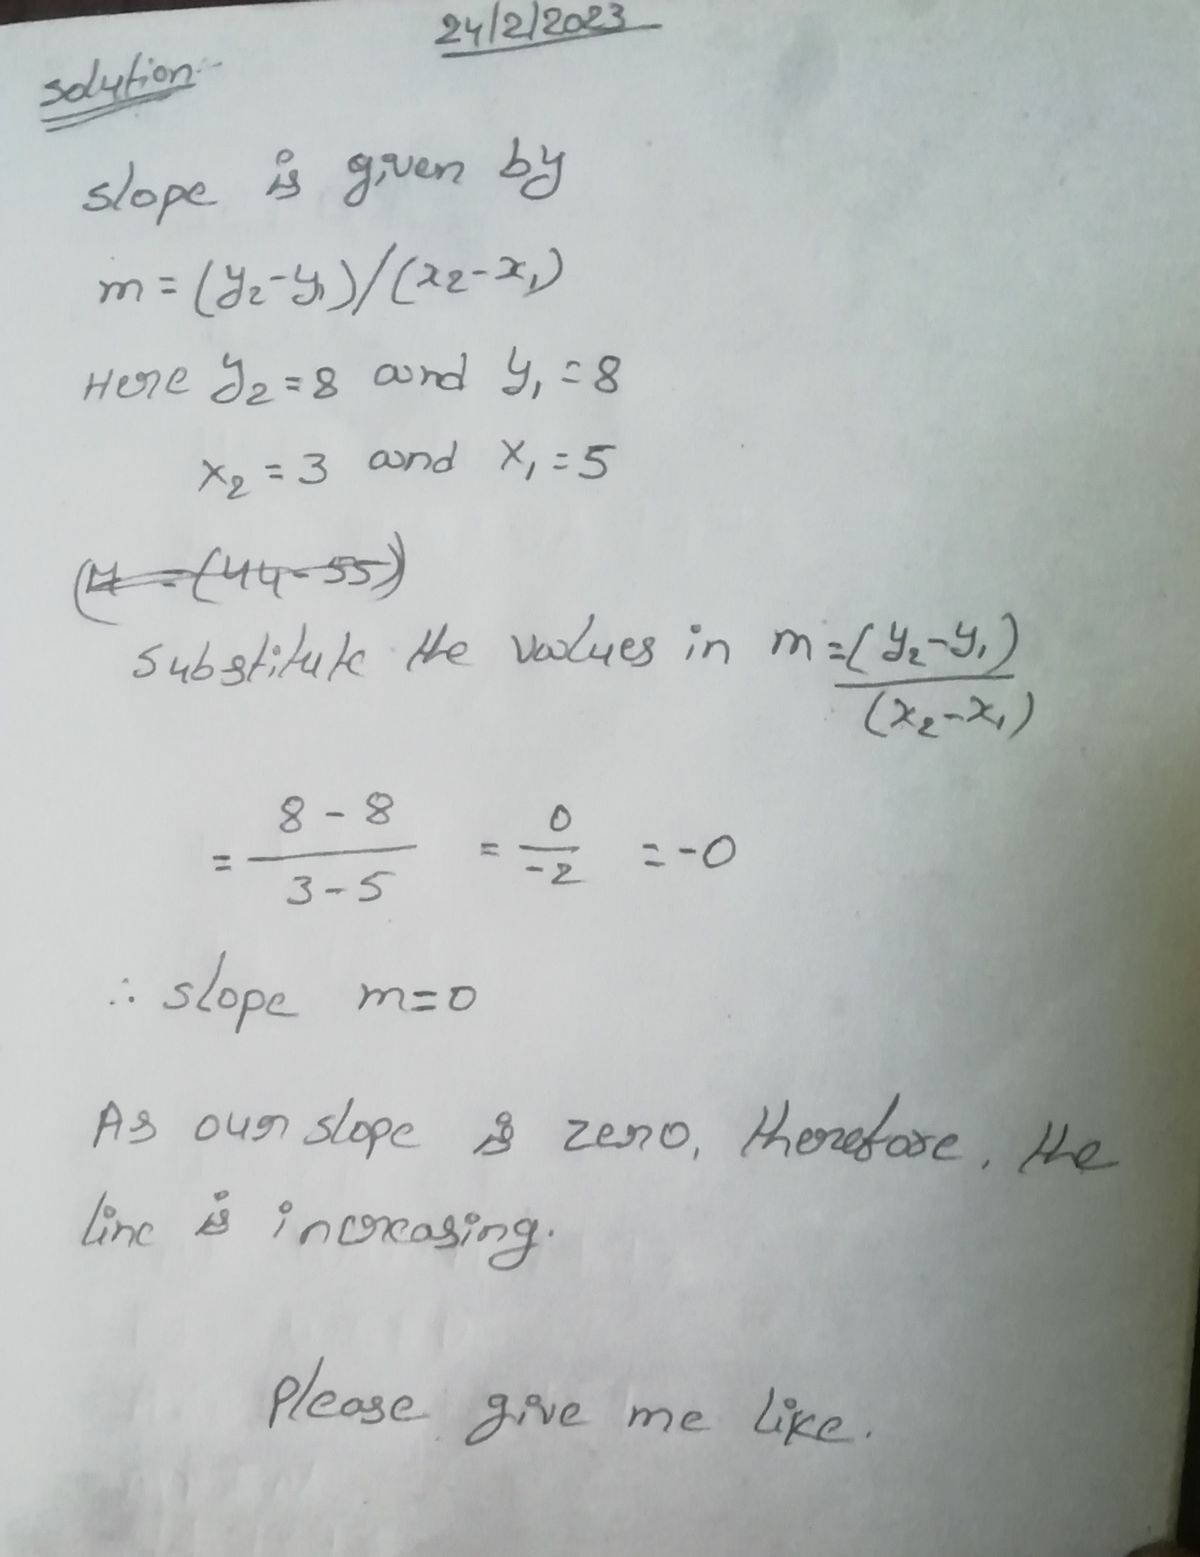 24/2/2023
Solution:-
slope is given by
m = (y₂-y₁)/(x₂-x₁)
Here y₂=8 and y₁=8
x₂=3 and x₁=5
(M = (44-55)
Substitute the values in m = (y₂-y₁)
(x₂-x₁)
= 8 - 8 / 3 - 5 = 0 / -2 = -0
∴ slope m=0
As our slope is zero, therefore, the
line is increasing.
Please give me like.